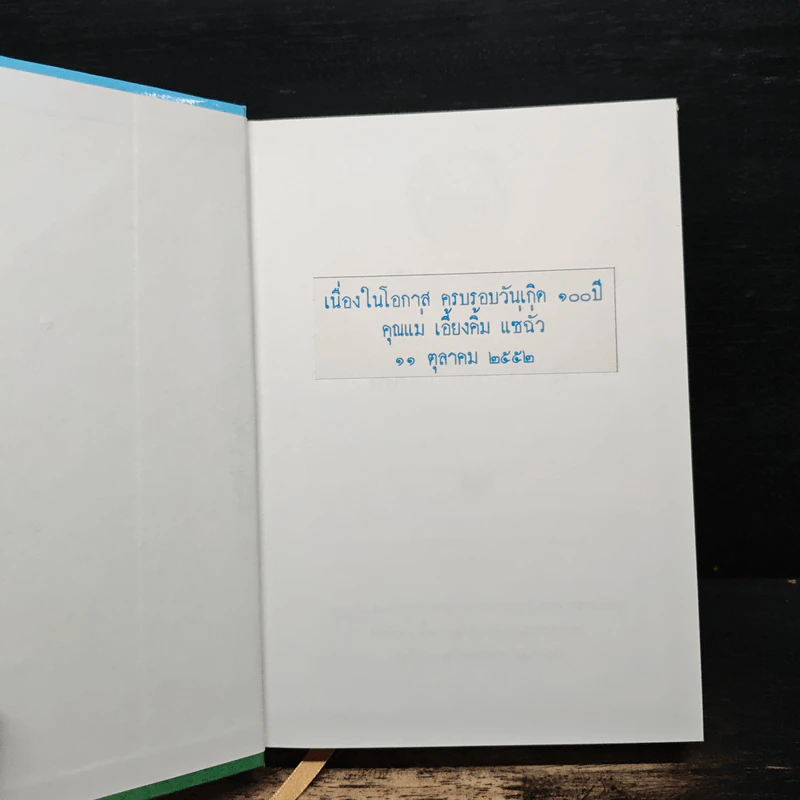 เนื่องในโอกาส ครบรอบวันเกิด ๑๐๐ปี
คุณแม่ เอี้ยงคิ้ม แซ่ฉั่ว
๑๑ ตุลาคม ๒๕๕๒